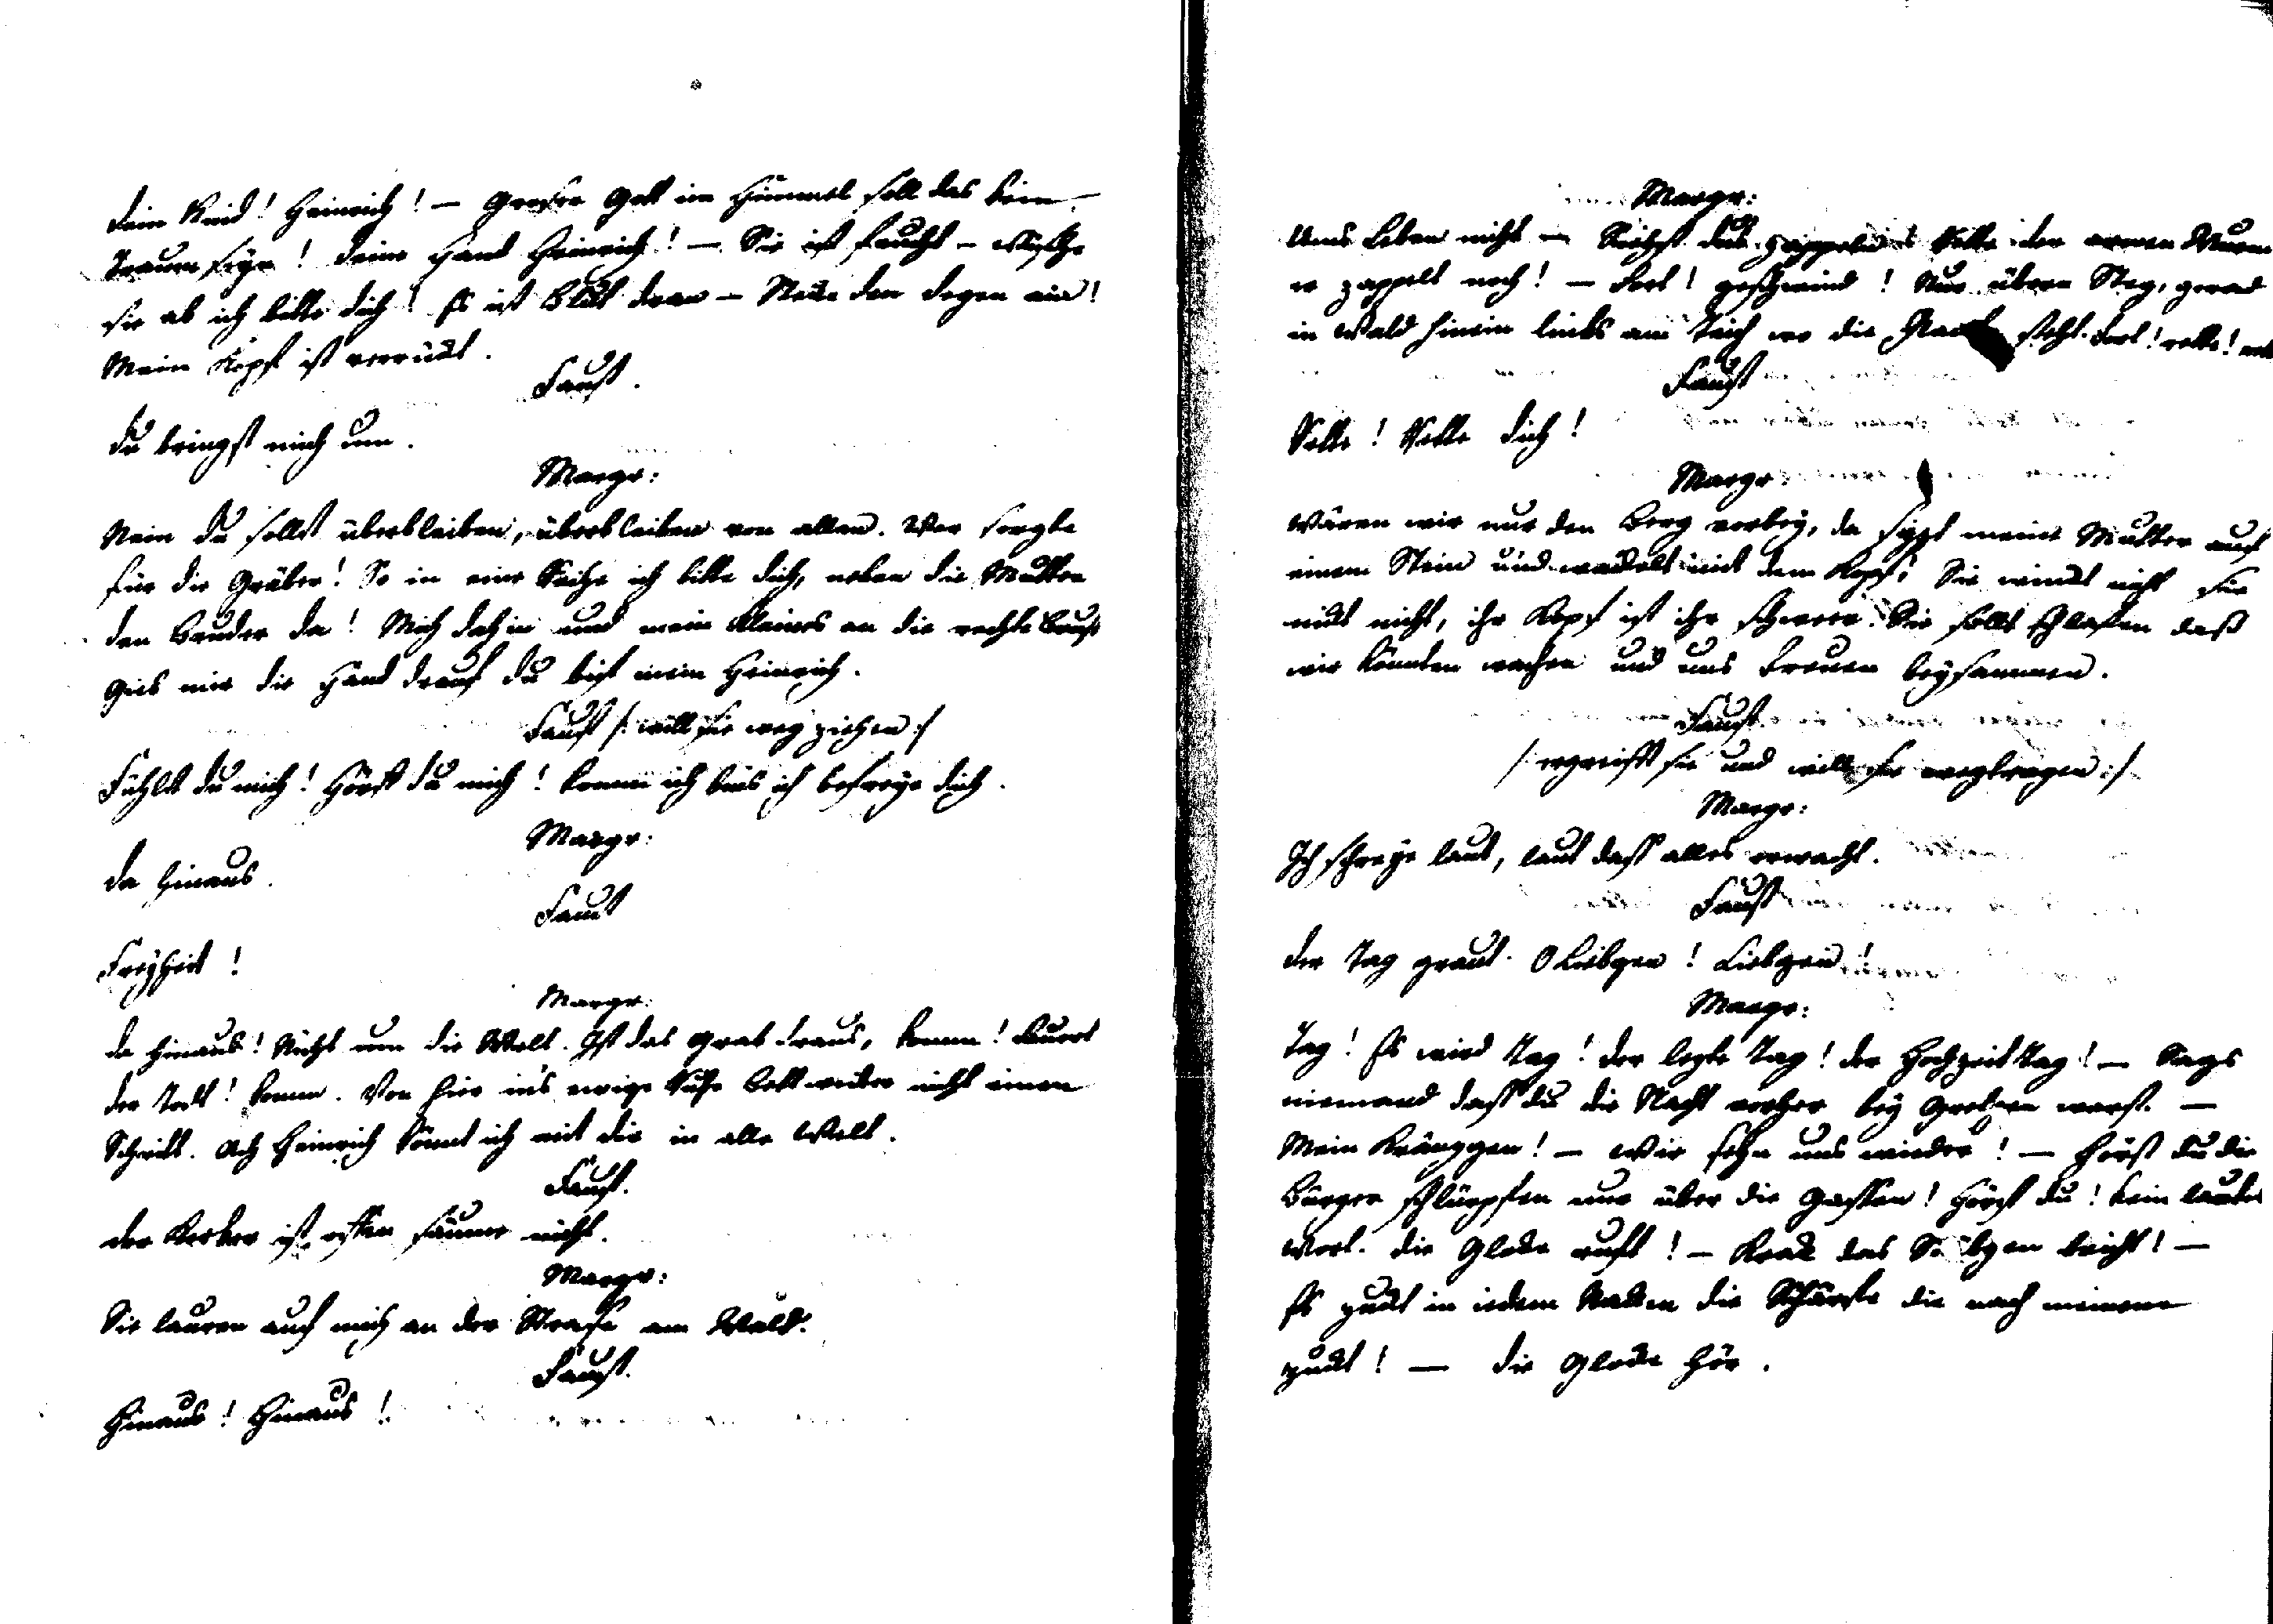 dein Kind! Heinrich! — Groser Gott im Himmel soll das kein
Traum seyn! Deine Hand Heinrich! — Sie ist feucht — Wische
sie ab ich bitte dich! Es ist Blut dran — Stecke den Degen ein!
Mein Kopf ist verrückt.
Faust.
Du bringst mich um.
Margr:
Nein du sollst überbleiben, überbleiben von allen. Wer sorgte
für die Gräber! So in eine Reihe ich bitte dich, neben die Mutter
den Bruder da! Mich dahin und mein Kleines an die rechte Brust
Gieb mir die Hand drauf du bist mein Heinrich.
Faust /: will sie weg ziehen :/
Fühlst du mich! Hörst du mich! komm ich bins ich befreye dich.
Margr:
Da hinaus.
Faust
Freyheit!
Margr:
Da hinaus! Nicht um die Welt. Ist das Grab draus, komm! Lauert
der Todt! komm. Von hier in's ewige Ruhe Bett weiter nicht einen
Schritt. Ach Heinrich könnt ich mit dir in alle Welt.
Faust.
Der Kerker ist offen säume nicht.
Margr:
Sie lauren auf mich an der Strase am Wald.
Faust.
Hinaus! Hinaus!
Margr:
Ums Leben nicht — Siehst du's zappeln Rette den armen Wurm
er zappelt noch! — Fort! geschwind! Nur übern Steg, gerad
in Wald hinein lincks am Teich wo die Planke steht. Fort! rette!
Faust
Rette! Rette dich!
Margr
Wären wir nur den Berg vorbey, da sizzt meine Mutter auf
einem Stein und wackelt mit dem Kopf! Sie winckt nicht sie
nickt nicht, ihr Kopf ist ihr schweer. Sie sollt schlafen daß
wir könnten wachen und uns freuen beysammen.
Faust
/: ergreifft sie und will sie wegtragen :/
Margr:
Ich schreye laut, laut dass alles erwacht.
Faust
Der Tag graut. O Liebgen! Liebgen!
Margr:
Tag! Es wird Tag! Der lezte Tag! Der Hochzeit Tag! — Sags
niemand dass du die Nacht vorher bey Gretgen warst. —
Mein Kränzgen! — Wir sehn uns wieder! — Hörst du die
Bürger schlürpfen nur über die Gassen! Hörst du! Kein lautes
Wort. Die Glocke ruft! — Krack das Stäbgen bricht! —
Es zuckt in iedem Nacken die Schärfe die nach meinem
zuckt! — Die Glocke hör.